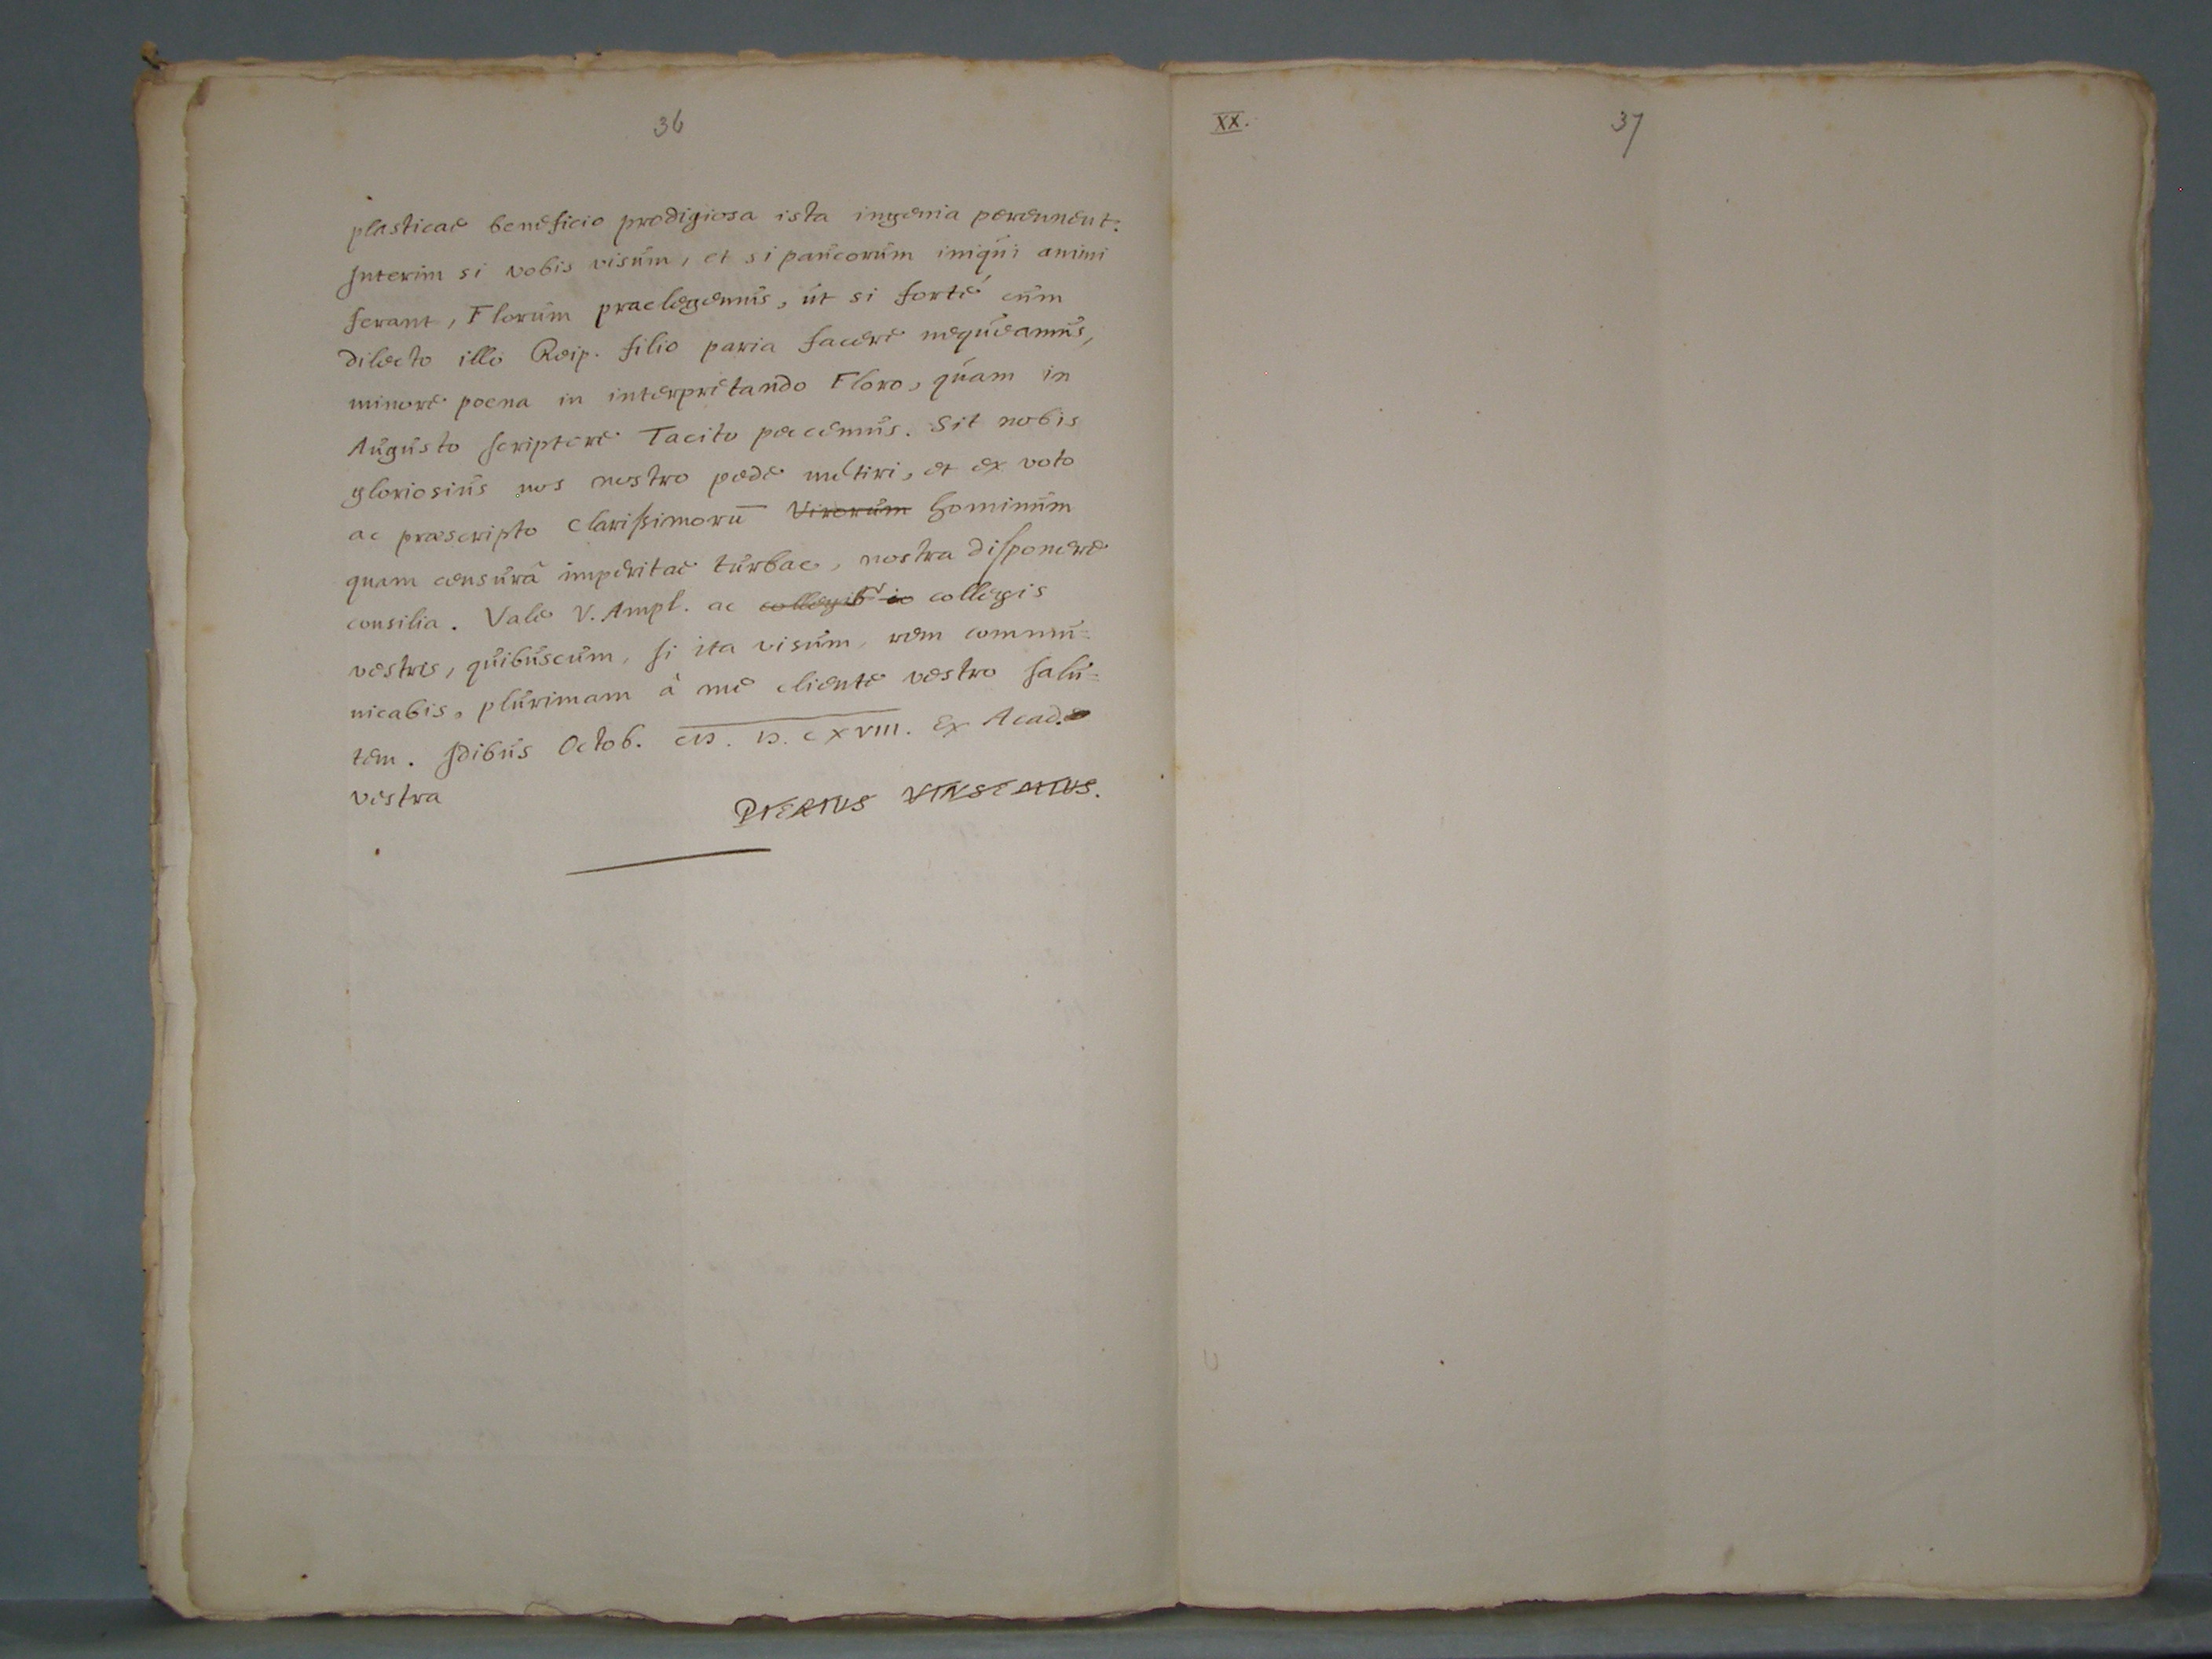 36
plasticae beneficio prodigiosa ista ingenia perennent.
Interim si vobis visum, et si paucorum iniqui animi
ferant, Florum praelegemus, ut si forté cum
dilecto illo Reip. filio paria facere nequeamus,
minore poena in interpretando Floro, quam in
Augusto scriptore Tacito peccemus. Sit nobis
gloriosius nos nostro pede metiri, et ex voto
ac praescripto clarissimorū Virorum hominum
quam censurâ imperitae turbae, nostra disponere
consilia. Vale V. Ampl. ac collegis
vestris, quibuscum, si ita visum, rem commu=
nicabis, plurimam à me cliente vestro salu=
tem. Idibus Octob. cIɔ. Iɔ. cXVIII. Ex Acad.
vestra
PIERIUS WINSEMIUS.
XX.
37